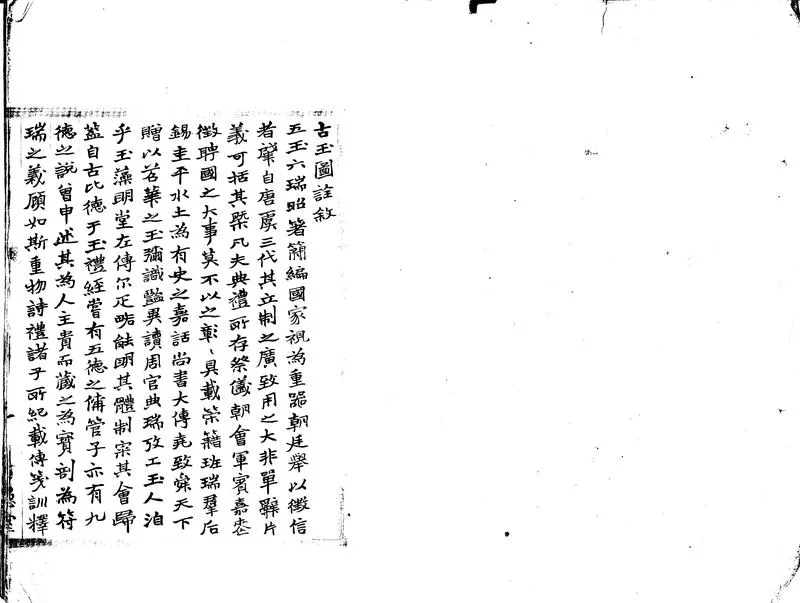 古玉圖詮敘
五玉六瑞昭箸簡編國家視為重器朝廷舉以徵信
者肈自唐虞三代其立制之廣致用之大非單辭片
義可括其槩凡夫典禮所存祭儀朝會軍賓嘉
徵聘國之大事莫不以之彰〻具載榮籍班瑞羣后
錫圭平水土為有史之嘉話尚書大傳堯致
天下
贈以苕華之玉彌識豔異讀周官典瑞攷工玉人洎
乎玉藻明堂左傳尔疋略能明其體制宷其會歸
蓋自古比德于玉禮經嘗有五德之俌管子亦有九
德之說曾申述其為人主貴而藏之為寶剖為符
瑞之義顧如斯重物詩禮諸子所紀載傳箋訓釋